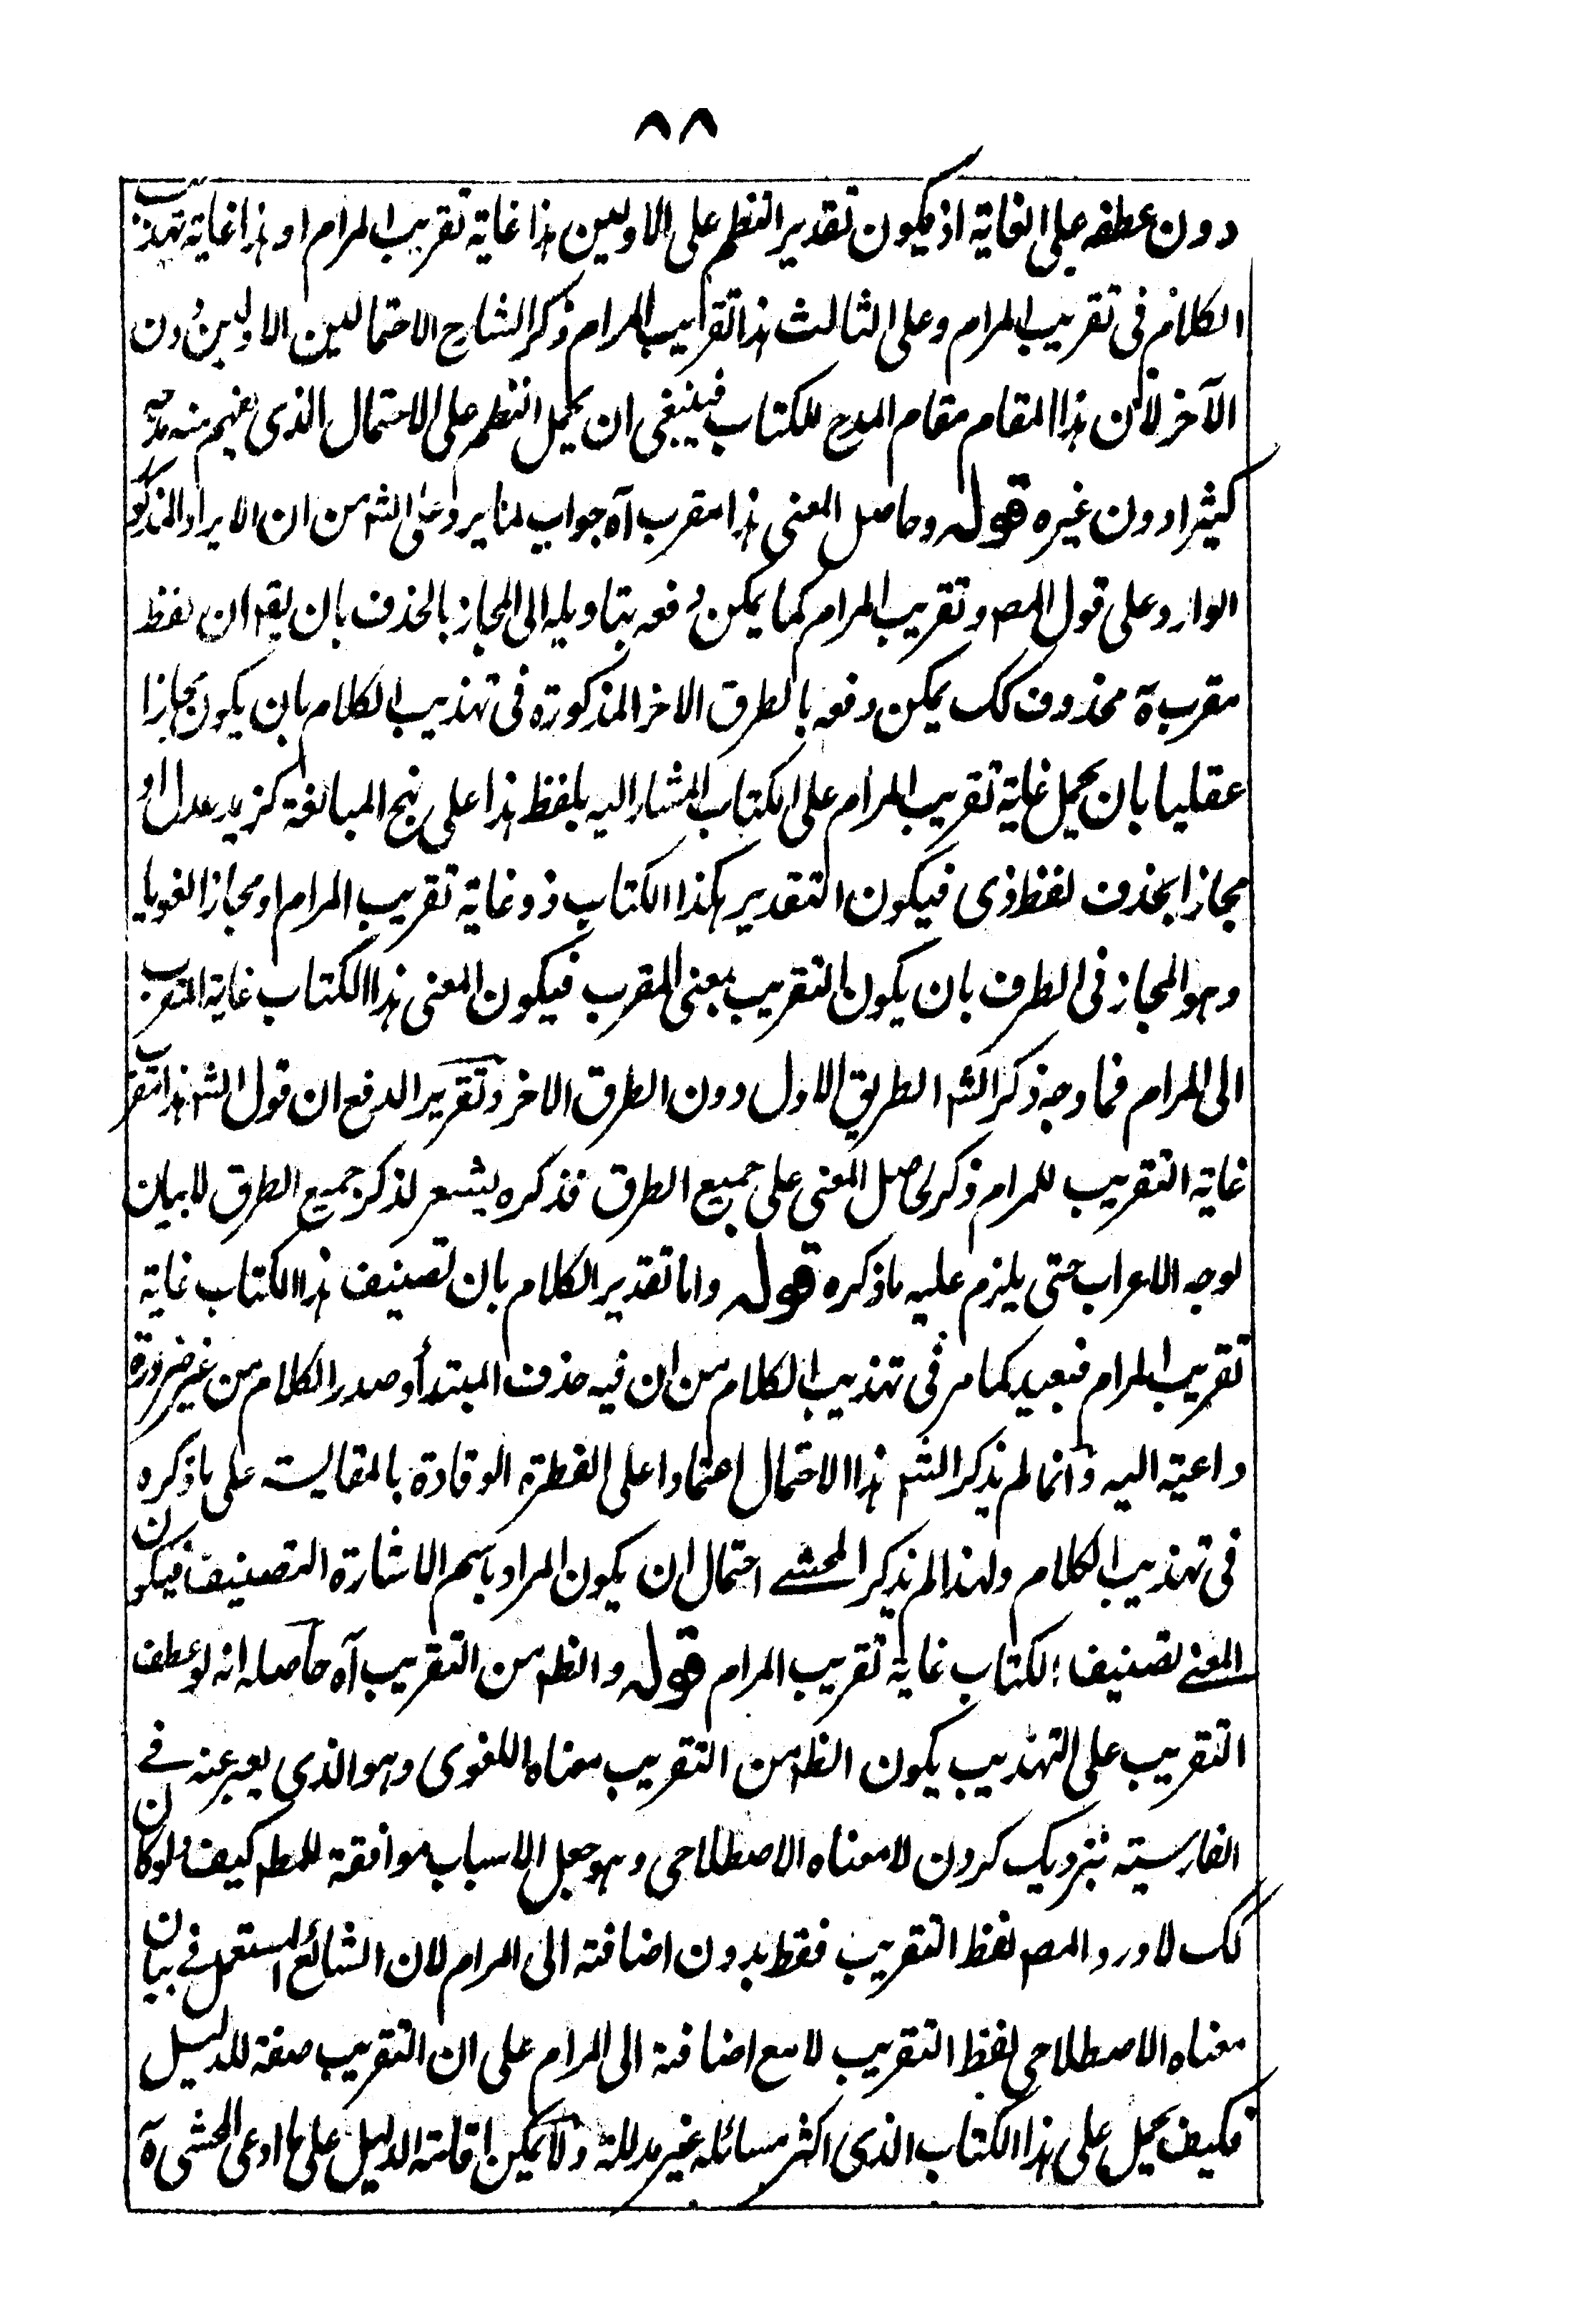 ٨٨
دون عطفه على الغاية اذ يكون تقدير النظم على الاوليين هذا غاية تقريب المرام او هذا غاية تهذيب
الكلام فى تقريب المرام وعلى الثالث هذا تقريب المرام ذكر الشارح الاحتمالين الاوليين دون
الآخر لان هذا المقام مقام المدح للكتاب فينبغى ان يحمل النظم على الاحتمال الذى يفهم منه مدحه
كثيرا دون غيره قوله وحاصل المعنى هذا مقرب آه جواب لما يرد على الشه من ان الايراد المذكور
الوارد على قول المصه وتقريب المرام كما يمكن دفعه بتاويله الى المجاز بالحذف بان يقه ان لفظ
مقرب ة محذوف كك يمكن دفعه بالطرق الاخر المذكورة فى تهذيب الكلام بان يكون مجازا
عقليا بان يحمل غاية تقريب المرام على الكتاب المشار اليه بلفظ هذا على نهج المبالغة كزيد عدل او
مجازا بحذف لفظ ذى فيكون التقدير هكذا الكتاب ذو غاية تقريب المرام او مجازا لغويا
وهو المجاز فى الطرف بان يكون التقريب بمعنى المقرب فيكون المعنى هذا الكتاب غاية المقرب
الى المرام فما وجه ذكر الشه الطريق الاول دون الطرق الاخر وتقرير الدفع ان قول الشه هذا مقرب
غاية التقريب للمرام ذكر لحاصل المعنى على جميع الطرق فذكره يشعر لذكر جميع الطرق لا بيان
لوجه الاعراب حتى يلزم عليه ما ذكره قوله واما تقدير الكلام بان تصنيف هذا الكتاب غاية
تقريب المرام فبعيد كما مر فى تهذيب الكلام من ان فيه حذف المبتدأ وصدر الكلام من غير ضرورة
داعية اليه وانما لم يذكر الشه هذا الاحتمال اعتمادا على الفطرة الوقادة بالمقايسة على ما ذكره
فى تهذيب الكلام ولهذا لم يذكر المحشے احتمال ان يكون المراد باسم الاشارة التصنيف فيكون
المعنے تصنيف الكتاب غاية تقريب المرام قوله والظه من التقريب آه حاصله انه لو عطف
التقريب على التهذيب يكون الظه من التقريب معناه اللغوى وهو الذى يعبر عنه فے
الفارسية بنزديك كردن لا معناه الاصطلاحى وهو جعل الاسباب موافقة للمطه كيف ولو كان
كك لاورد المصه لفظ التقريب فقط بدون اضافته الى المرام لان الشائع المستعمل فے بيان
معناه الاصطلاحى لفظ التقريب لا مع اضافته الى المرام على ان التقريب صفة للدليل
فكيف يحمل على هذا الكتاب الذى اكثر مسائله غير مدللة ولا يمكن اقامة الدليل على ما ادعى المحشى ة